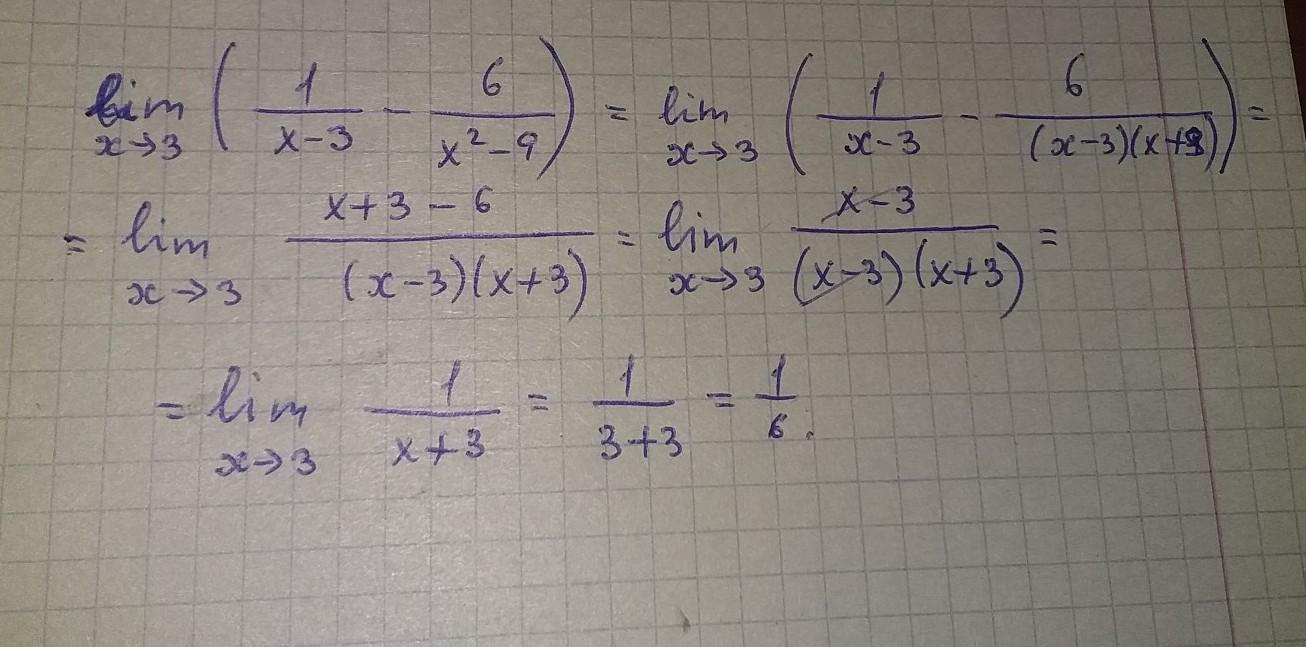 lim x→3 ( 1/(x-3) - 6/(x²-9) ) = lim x→3 ( 1/(x-3) - 6/((x-3)(x+3)) ) =
= lim x→3 (x+3-6)/((x-3)(x+3)) = lim x→3 (x-3)/((x-3)(x+3)) =
= lim x→3 1/(x+3) = 1/(3+3) = 1/6.